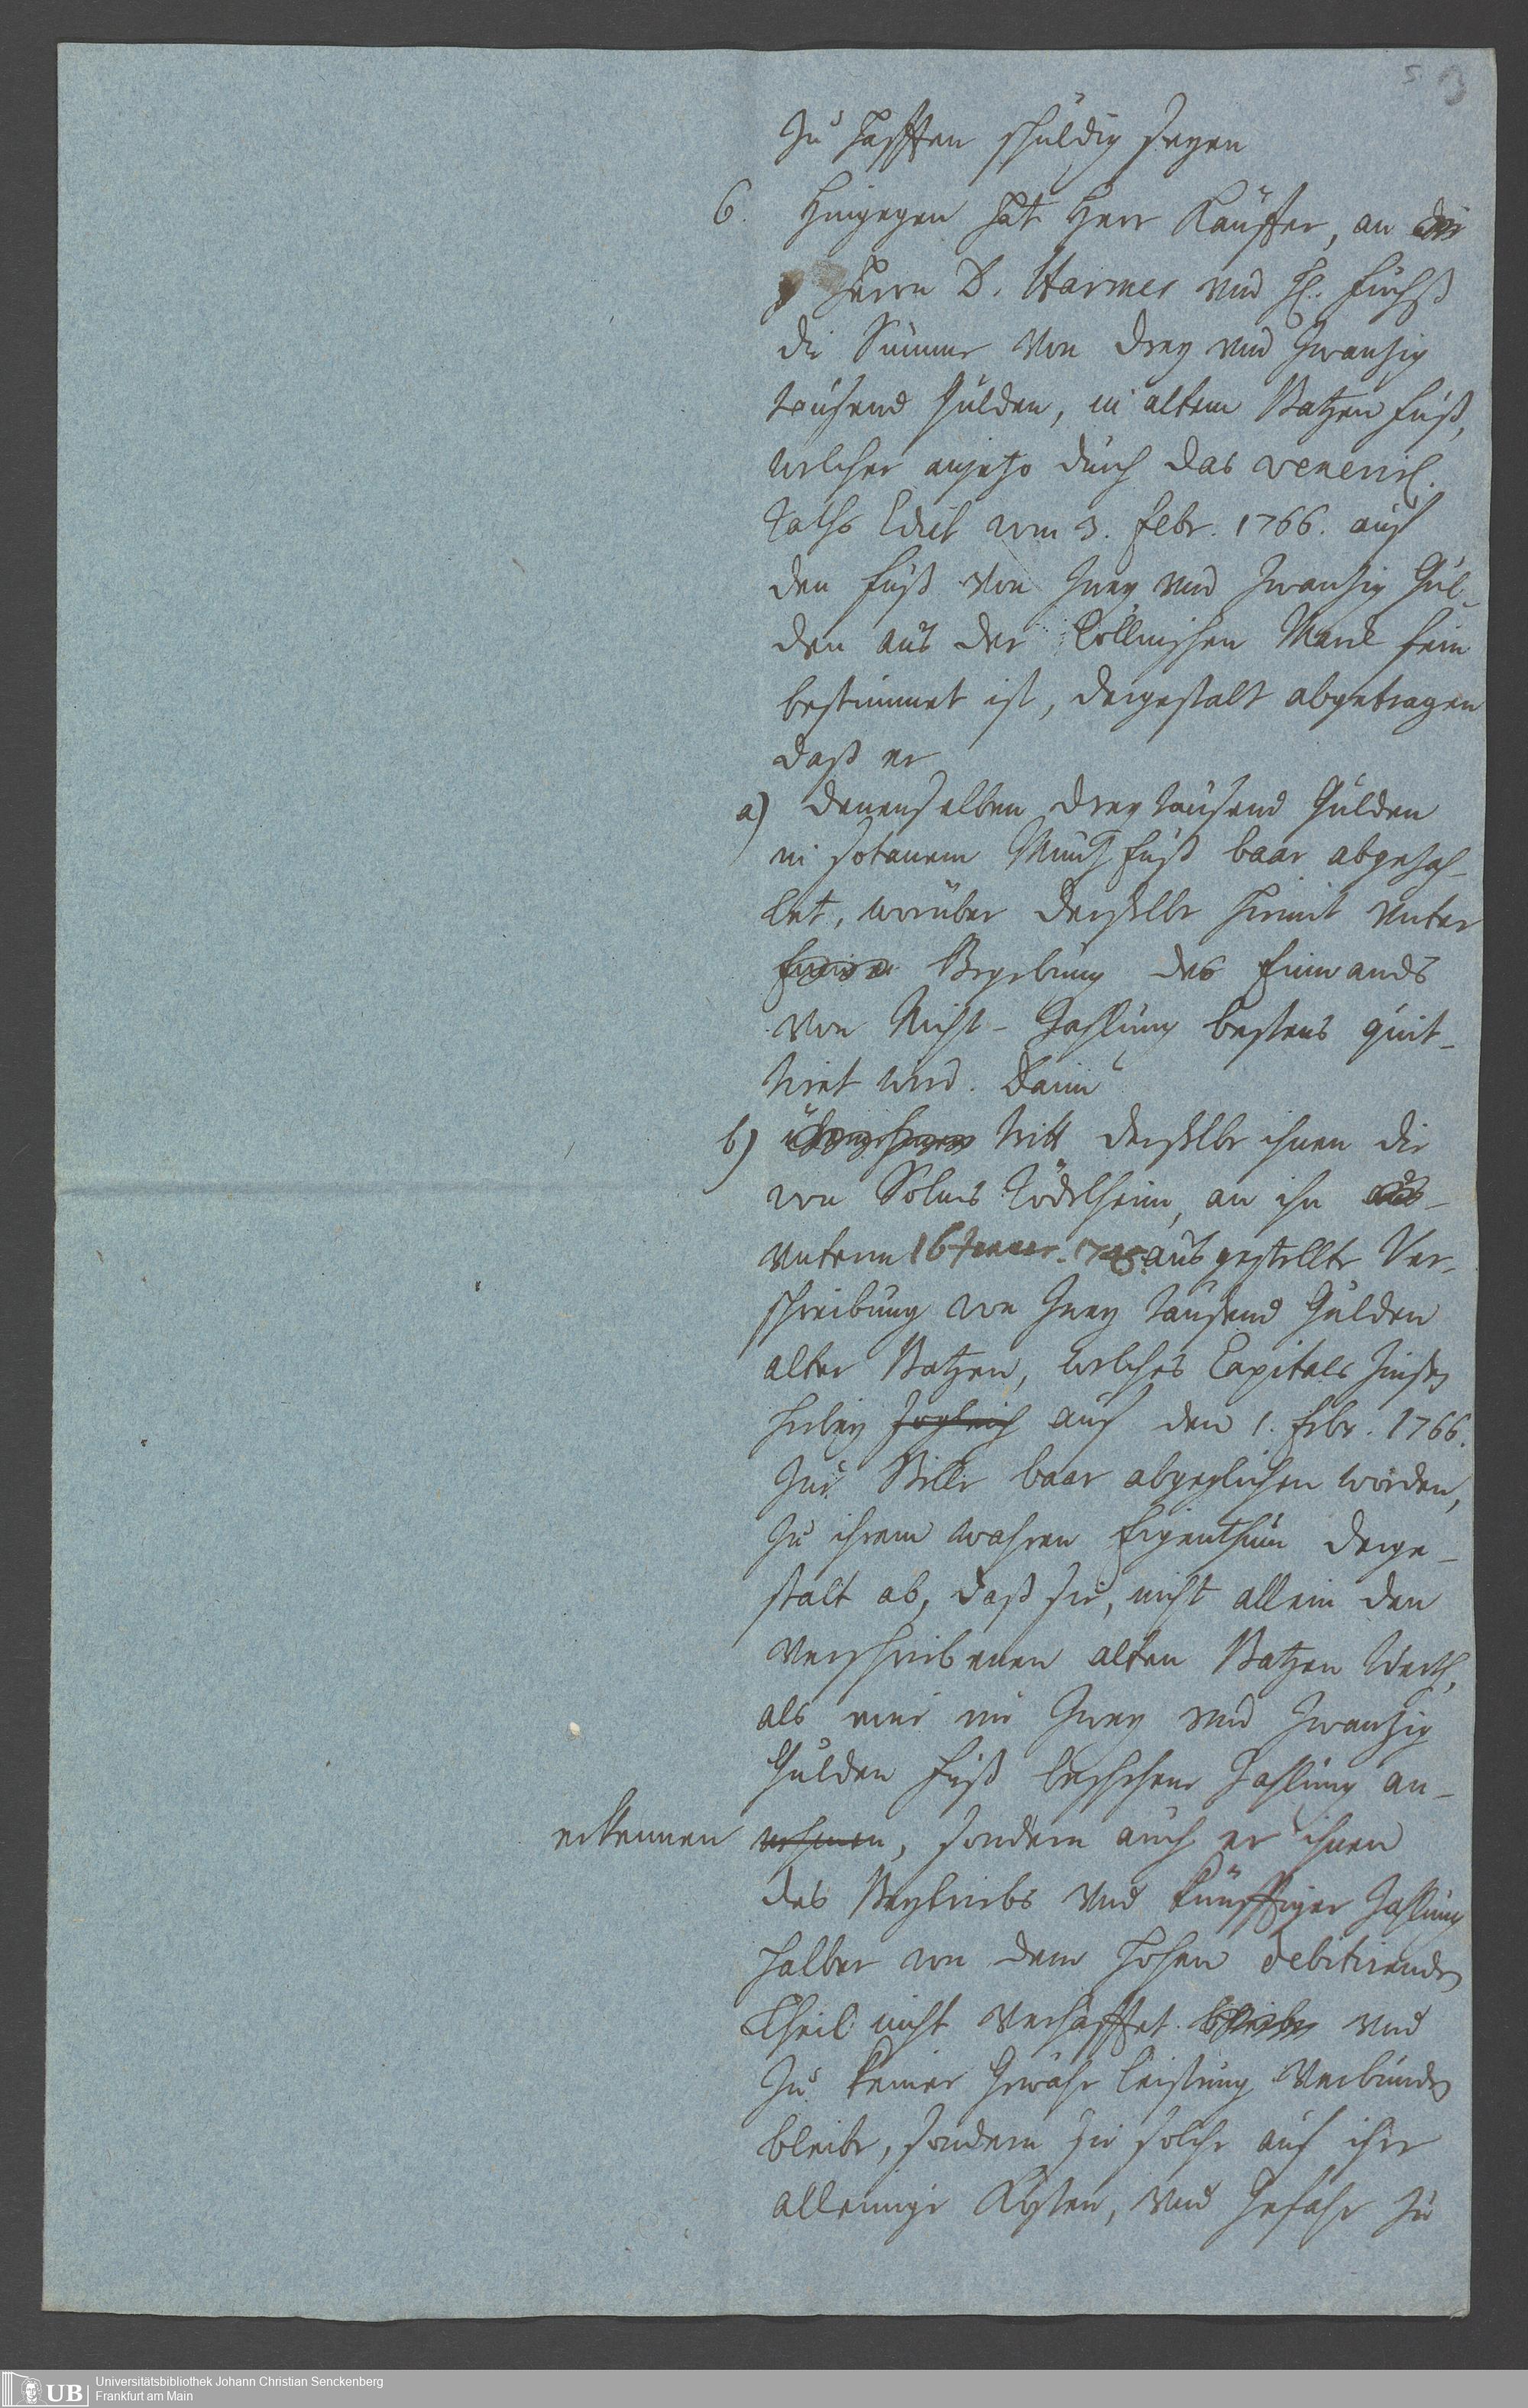 5 3
zu hafften schuldig seyen
6. Hingegen hat Herr Kaüffer, an die
Herrn D. Harmes und H. Fuchß
die Summe von drey und zwanzig
tausend Gulden, in altem Batzen fuß,
welcher anjetzo durch das
Raths Edict vom 3. Febr. 1766. auf
den fuß von zwey und zwanzig Gul-
den aus der Cöllnischen Marck fein
bestimmet ist, dergestalt abgetragen
daß er
a) denenselben drey tausend Gulden
in sotanem Müntzfuß baar abgezah-
let, worüber derselbe hiemit unter
Begebung des Einwands
von Nicht-Zahlung bestens quit-
tiret wird. Dann
b) tritt derselbe ihnen die
von Solms Rödelheim, an ihn aus-
unterm 16 Jenner. 1748. ausgestellte Ver-
schreibung von zwey tausend Gulden
alter Batzen, welches Capitals Zinßen
hiebey zugleich auf den 1. Febr. 1766.
zur Stelle baar abgeglichen worden,
zu ihrem wahren Eigenthum derge-
stalt ab, daß sie, nicht allein den
verschriebenen alten Batzen Werth,
als eine im zwey und zwanzig
Gulden fuß beschehene Zahlung an-
erkennen nehmen, sondern auch er ihnen
des Beytriebs und künfftiger Zahlung
halber von dem hohen debitirenden
Theil nicht verhafftet bleibe und
zu keiner Gewähr leistung verbunden
bleibe, sondern sie solche auf ihre
alleinige Kosten, und Gefahr zu
Universitätsbibliothek Johann Christian Senckenberg
UB Frankfurt am Main